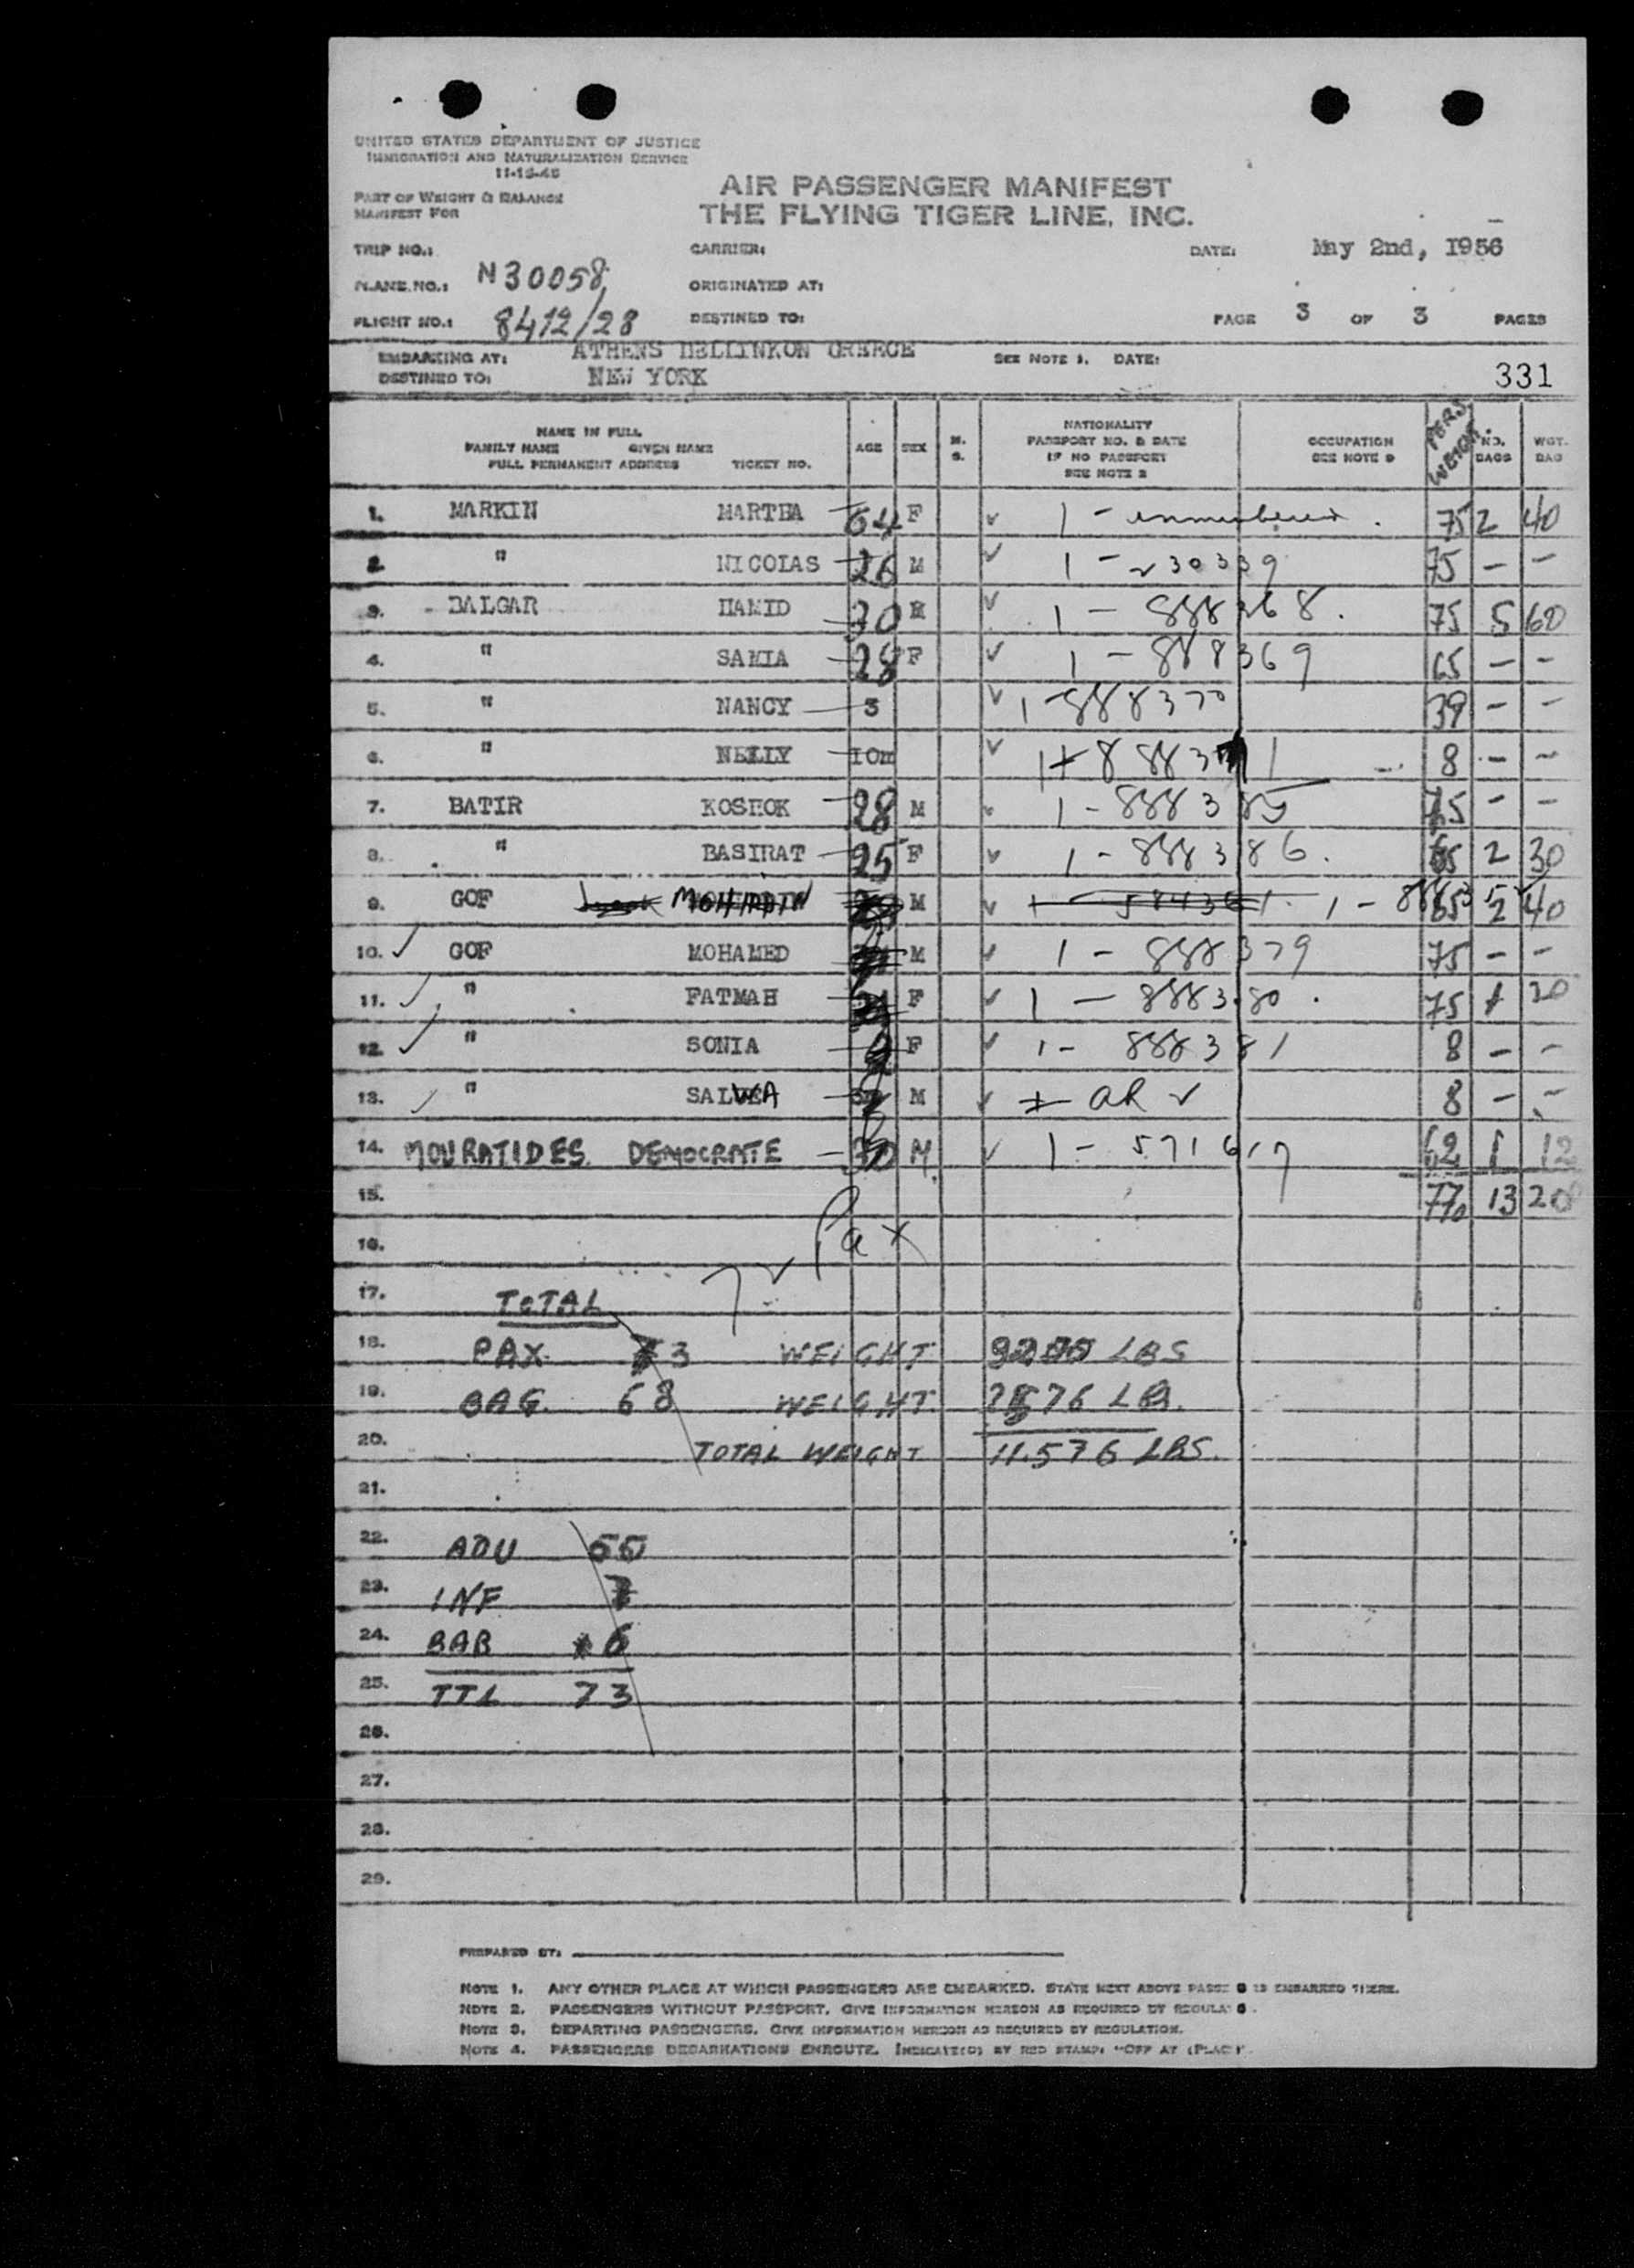 UNITED STATES DEPARTMENT OF JUSTICE
IMMIGRATION AND NATURALIZATION SERVICE
11-15-45
PART OF WEIGHT & BALANCE
MANIFEST FOR
AIR PASSENGER MANIFEST
THE FLYING TIGER LINE, INC.
TRIP NO.: CARRIER: DATE: May 2nd, 1956
PLANE NO.: N30058 ORIGINATED AT:
FLIGHT NO.: 8412/28 DESTINED TO: PAGE 3 OF 3 PAGES
EMBARKING AT: ATHENS HELLINKON GREECE SEE NOTE 1. DATE:
DESTINED TO: NEW YORK 331
NAME IN FULL
FAMILY NAME GIVEN NAME
FULL PERMANENT ADDRESS TICKET NO.
AGE SEX M. S.
NATIONALITY
PASSPORT NO. & DATE
IF NO PASSPORT
SEE NOTE 2
OCCUPATION
SEE NOTE 3
PERS WEIGHT
NO. BAGS
WGT. BAG
1. MARKIN MARTHA 64 F 1 - 75 2 40
2. " NICOLAS 26 M 1 - 230339 75 - -
3. DALGAR HAMID 30 M 1 - 888368. 75 5 60
4. " SAMIA 28 F 1 - 888369 65 - -
5. " NANCY 3 1-888370 39 - -
6. " NELLY 10m 1 888371 8 - -
7. BATIR KOSHOK 28 M 1 - 888385 75 - -
8. " BASIRAT 25 F 1 - 888386. 65 2 30
9. GOF MOHIDDIN M 1 - 584361 1 - 65 2 40
10. GOF MOHAMED M 1 - 888379 75 - -
11. " FATMAH F 1 - 888380. 75 1 20
12. " SONIA F 1 - 888381 8 - -
13. " SALWA M 8 - -
14. MOURATIDES DEMOCRATE 30 M. 1 - 571617 62 1 12
15. 770 13 20
16. Pax
17. TOTAL 72
18. PAX 73 WEIGHT LBS
19. BAG. 68 WEIGHT LB.
20. TOTAL WEIGHT 11.576 LBS.
21.
22. ADU
23. INF 7
24. BAB 6
25. TTL 73
26.
27.
28.
29.
PREPARED BY:
NOTE 1. ANY OTHER PLACE AT WHICH PASSENGERS ARE EMBARKED. STATE NEXT ABOVE EMBARKED THERE.
NOTE 2. PASSENGERS WITHOUT PASSPORT. GIVE INFORMATION HEREON AS REQUIRED BY
NOTE 3. DEPARTING PASSENGERS. GIVE INFORMATION HEREON AS REQUIRED BY REGULATION.
NOTE 4. PASSENGERS DEBARKATIONS ENROUTE. INDICATE(D) BY RED STAMP: "OFF AT (PLACE)".